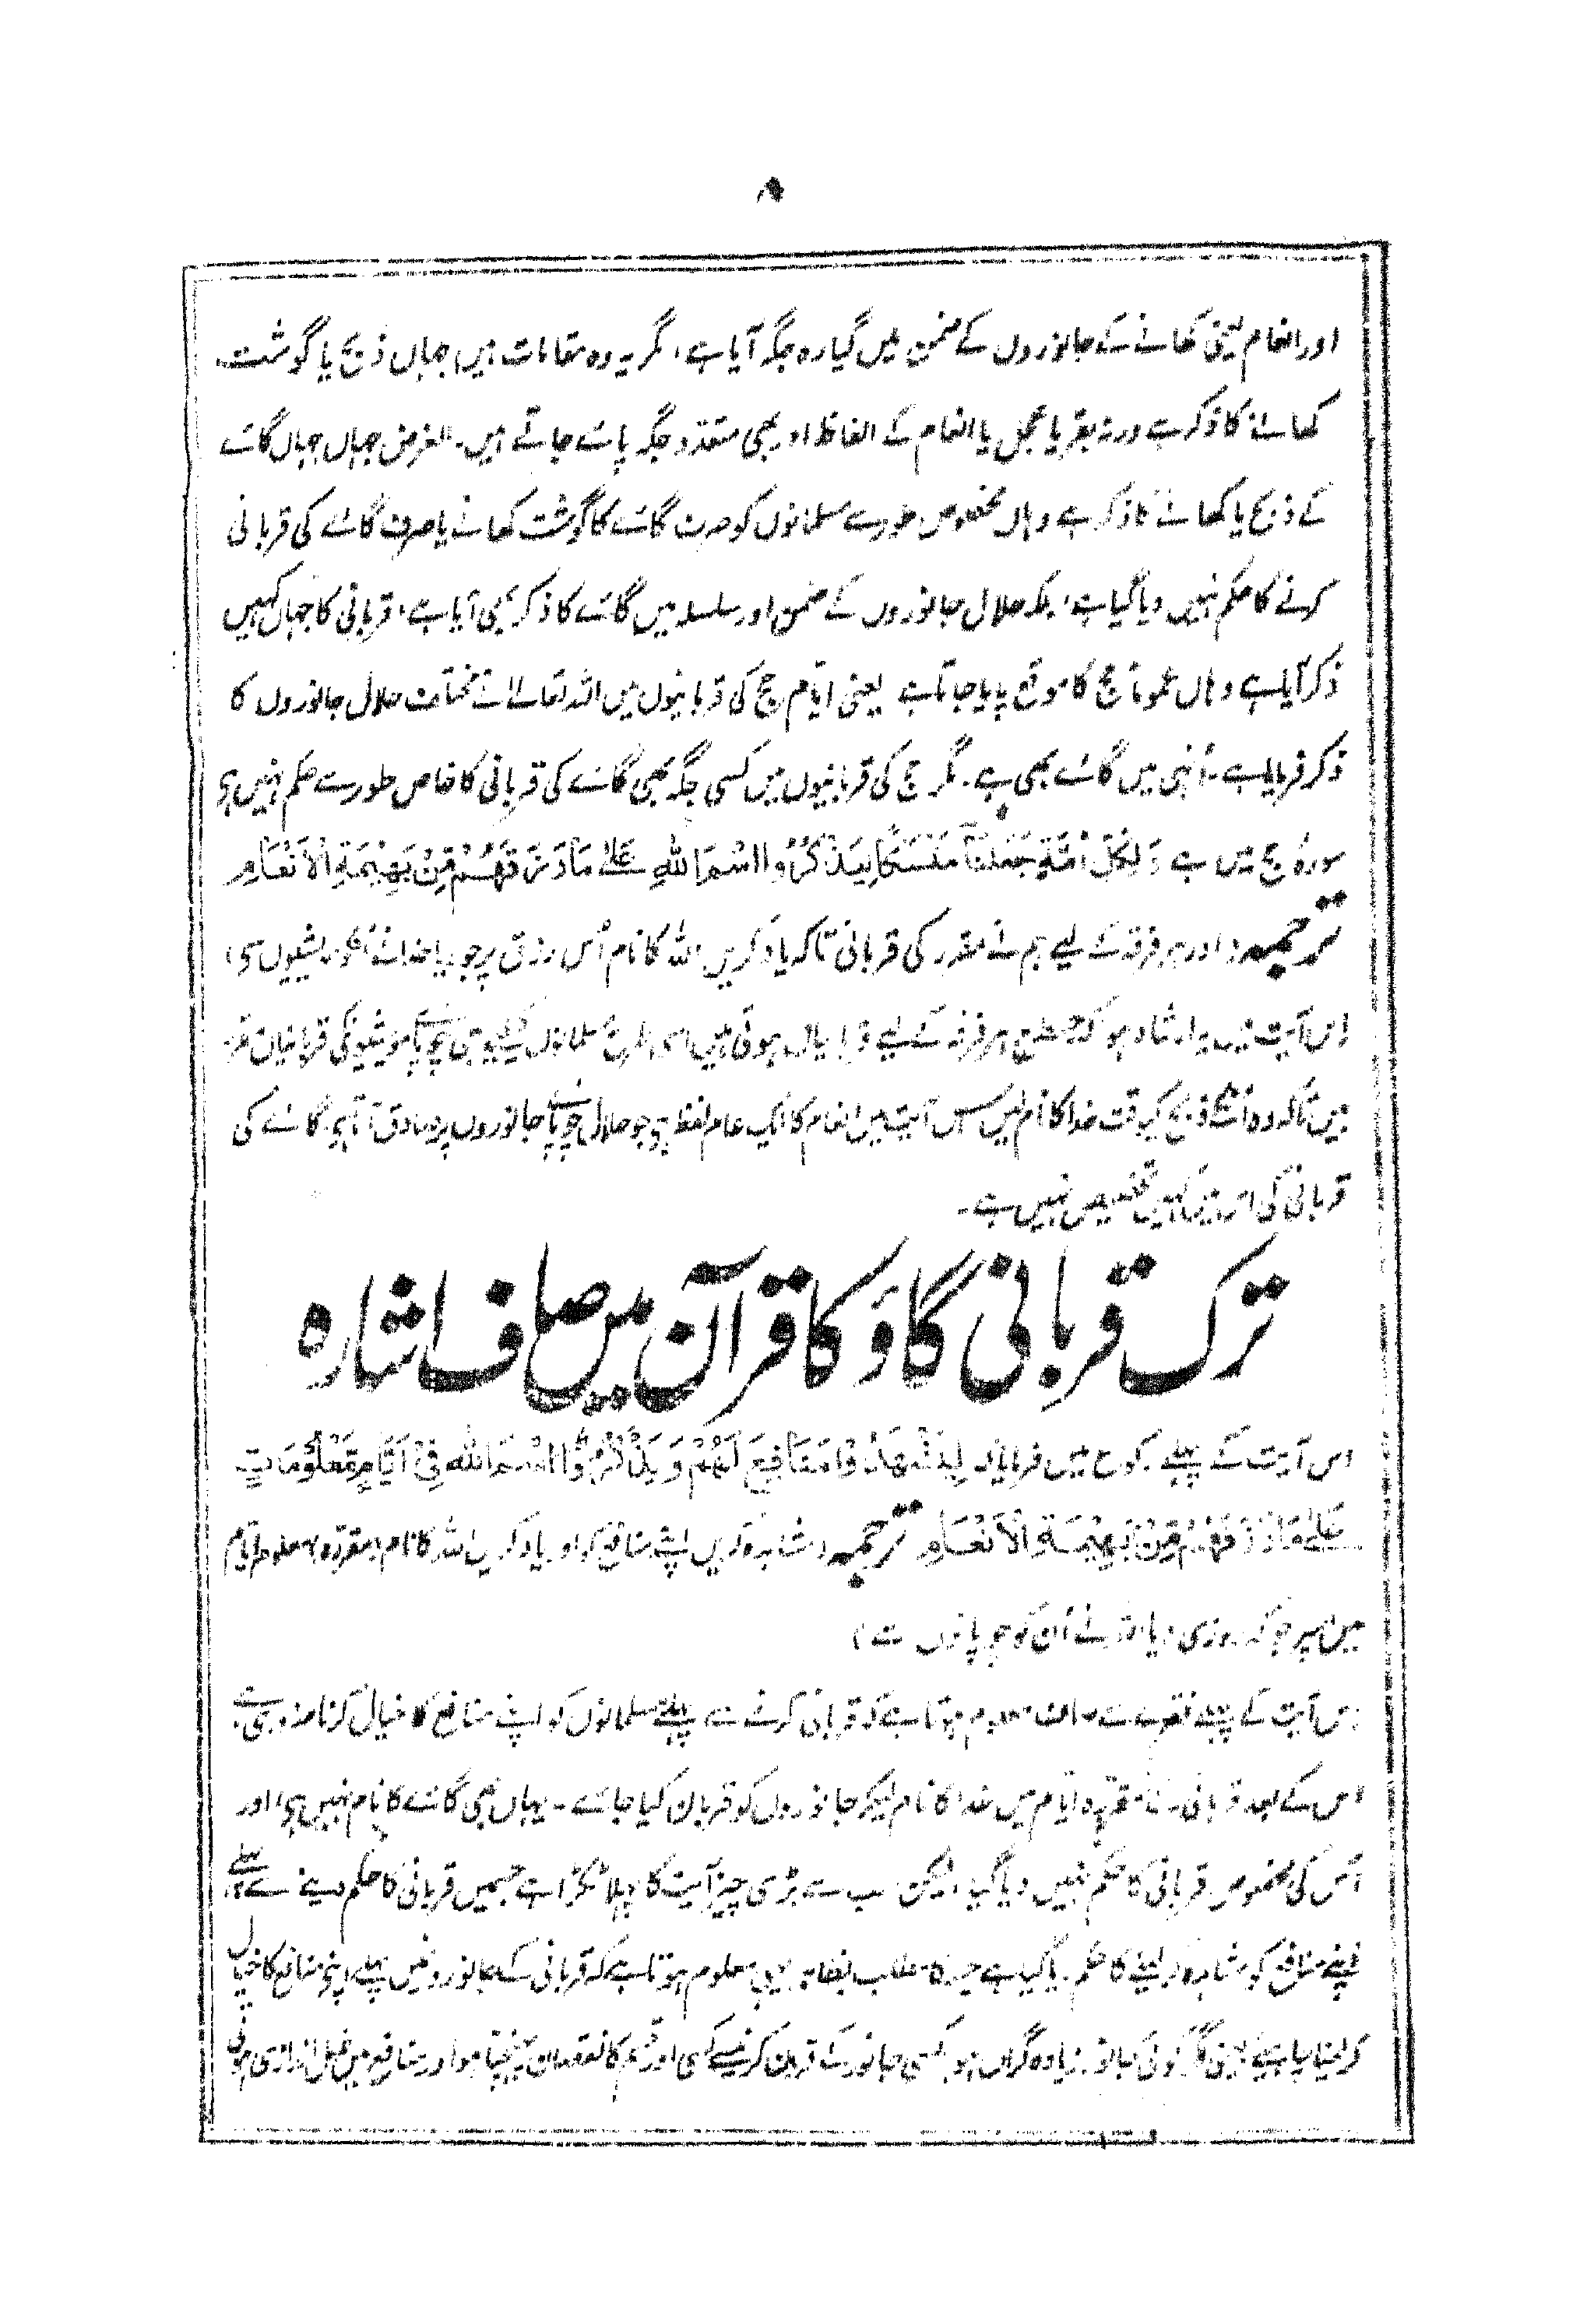 ۸
اور انعام یعنی کھانے کے جانوروں کے ضمن میں گیارہ جگہ آیا ہے، مگر یہ وہ مقامات ہیں جہاں ذبح یا گوشت
کھانے کا ذکر ہے ورنہ بقر یا عجل یا انعام کے الفاظ اور بھی متعدد جگہ پائے جاتے ہیں۔ الغرض جہاں جہاں گائے
کے ذبح یا کھانے کا ذکر ہے وہاں مخصوص طور سے مسلمانوں کو صرف گائے کا گوشت کھانے یا صرف گائے کی قربانی
کرنے کا حکم نہیں دیا گیا ہے، بلکہ حلال جانوروں کے ضمن اور سلسلہ میں گائے کا ذکر بھی آیا ہے، قربانی کا جہاں کہیں
ذکر آیا ہے وہاں عموماً حج کا موقع پایا جاتا ہے یعنی ایام حج کی قربانیوں میں اللہ تعالےٰ نے مختلف حلال جانوروں کا
ذکر فرمایا ہے۔ اُنہی میں گائے بھی ہے۔ مگر حج کی قربانیوں میں کسی جگہ بھی گائے کی قربانی کا خاص طور سے حکم نہیں ہے
سورۂ حج میں ہے وَلِكُلِّ اُمَّةٍ جَعَلْنَا مَنْسَكًا لِيَذْكُرُوا اسْمَ اللهِ عَلٰى مَا رَزَقَهُمْ مِّنْ بَهِيْمَةِ الْاَنْعَامِ
ترجمہ (اور ہر فرقہ کے لیے ہم نے مقرر کی قربانی تاکہ یاد کریں اللہ کا نام اُس رزق پر جو دیا خدا نے اُنکو مویشیوں سے)
اس آیت میں یہ ارشاد ہو کہ جسطرح ہر فرقہ کے لیے قربانیاں ہوتی ہیں اسی طرح مسلمانوں کیلئے بھی چوپائے مویشیونکی قربانیاں مقرر
ہیں تاکہ وہ اُنکے ذبح کیوقت خدا کا نام لیں اس آیت میں انعام کا ایک عام لفظ ہے جو حلال چوپائے جانوروں پر صادق آتا ہے۔ گائے کی
قربانی کی اس میں کہیں تخصیص نہیں ہے۔
ترک قربانی گاؤ کا قرآن میں صاف اشارہ
اس آیت کے پہلے رکوع میں فرمایا ہے لِيَشْهَدُوْا مَنَافِعَ لَهُمْ وَيَذْكُرُوا اسْمَ اللهِ فِيْ اَيَّامٍ مَّعْلُوْمَاتٍ
عَلٰى مَا رَزَقَهُمْ مِّنْ بَهِيْمَةِ الْاَنْعَامِ ترجمہ (مشاہدہ کریں اپنے منافع کو اور یاد کریں اللہ کا نام (مقررہ) معلوم ایام
میں اسپر جو کہ روزی دیا اللہ نے اُن کو چوپانوں سے)
اس آیت کے پہلے فقرے سے صاف معلوم ہوتا ہے کہ قربانی کرنے سے پہلے مسلمانوں کو اپنے منافع کا خیال کرنا ضروری ہے
اس کے بعد قربانی کے مقررہ ایام میں خدا کا نام لیکر جانوروں کو قربان کیا جائے۔ یہاں بھی گائے کا نام نہیں ہے، اور
اُس کی مخصوص قربانی کا حکم نہیں دیا گیا، لیکن سب سے بڑی چیز آیت کا پہلا ٹکڑا ہے جسمیں قربانی کا حکم دینے سے پہلے
اپنے منافع کو مشاہدہ کر لینے کا حکم دیا گیا ہے جسکا مطلب بظاہر یہی معلوم ہوتا ہے کہ قربانی کے جانورونمیں پہلے اپنے منافع کا خیال
کر لینا چاہیے یعنی اگر کوئی جانور زیادہ گراں ہو یا کسی جانور کے قربان کرنیسے کسی اور قسم کا نقصان پہنچتا ہو اور منافع میں خلل اندازی ہوتی